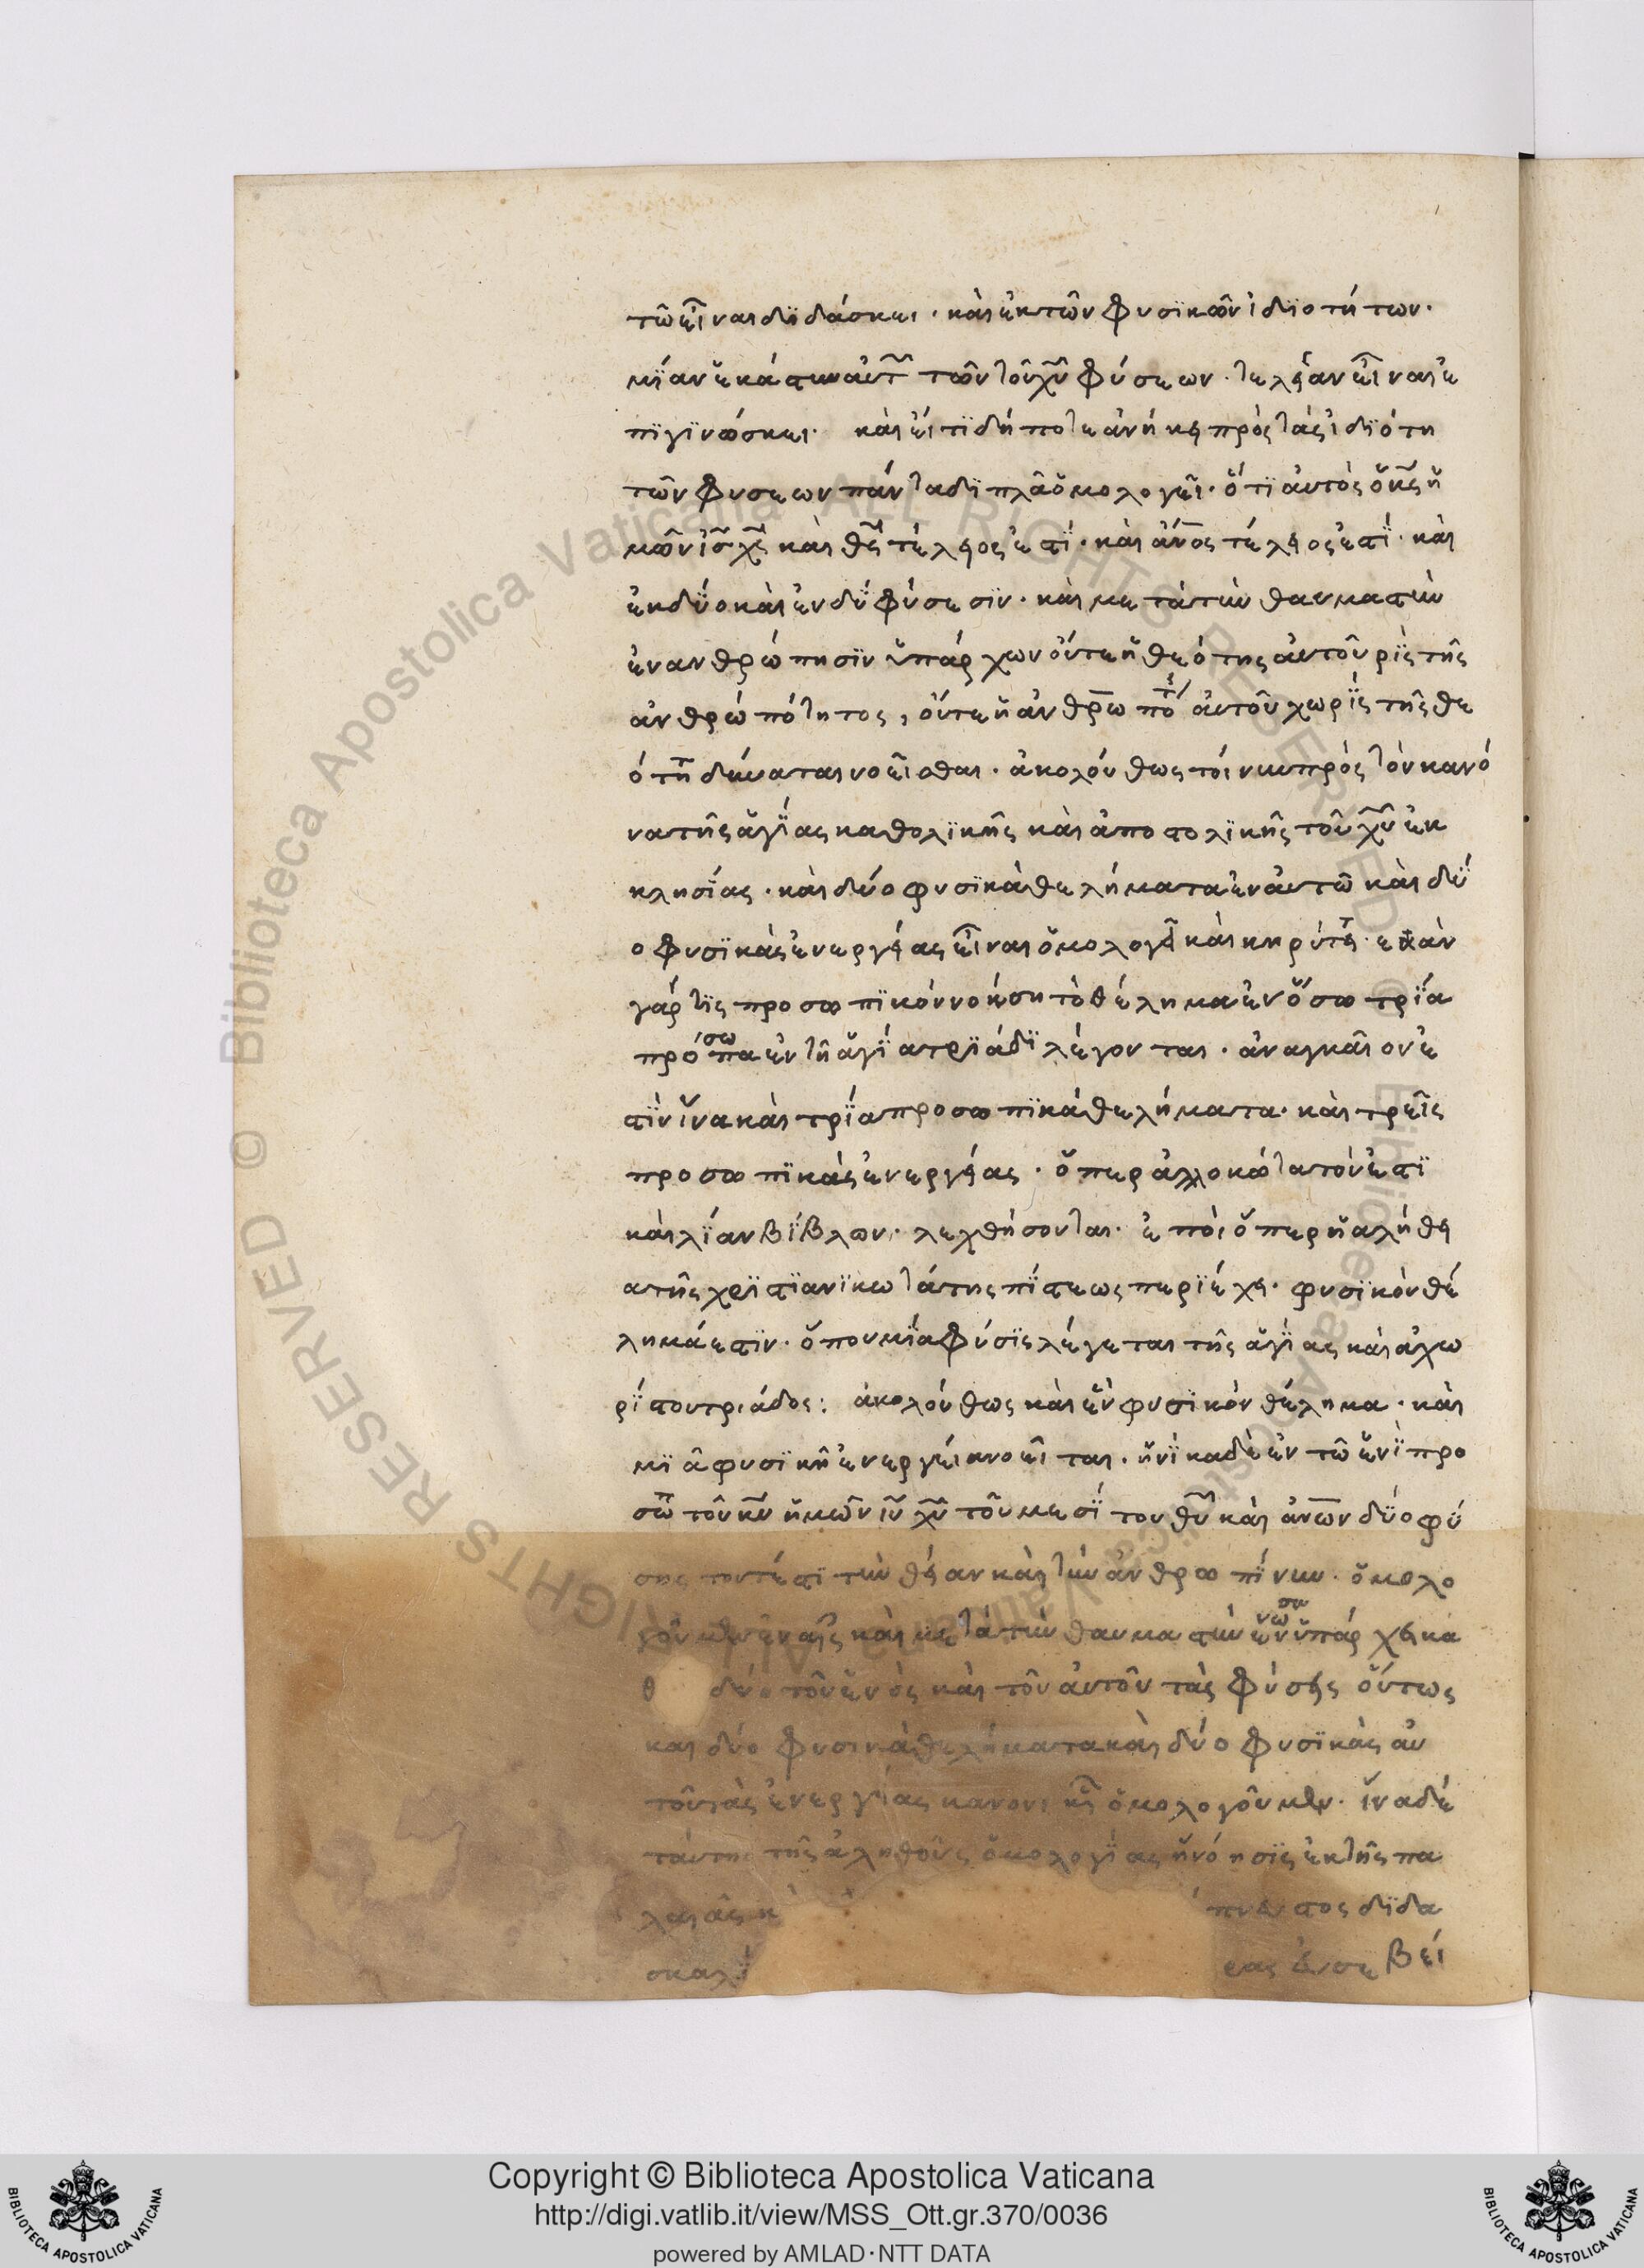 τῶ εἶναι διδάσκει · καὶ ἐκ τῶν φυσϊκῶν ἰδϊοτήτων ·
μΐαν ἑκάστην αὐτ τῶν τοῦ χῦ φύσεων · τελείαν εἶναι ἐ
πϊγϊνώσκει · καὶ εἴ τϊ δήποτε ἀνήκει πρὸς τὰς ἰδϊότη
τῶν φύσεων πάντα δϊπλᾶ ὁμολογεῖ · ὅτϊ αὐτὸς ὁ κς ἡ
μῶν ἰς χς καὶ θς τέλειος ἐστΐ · καὶ ἄνος τέλειος ἐστΐ · καὶ
ἐκ δύο καὶ ἐν δύ φύσεσϊν · καὶ μετὰ τὴν θαυμαστὴν
ἐνανθρώπησϊν ὑπάρχων οὔτε ἡ θεότης αὐτοῦ ρϊς τῆς
ἀνθρωπότητος, οὔτε ἡ ἀνθρωπό αὐτοῦ χωρΐς τῆς θε
ότητ δύναται νοεῖσθαι · ἀκολούθως τοίνυν πρὸς τὸν κανό
να τῆς ἁγΐας καθολϊκῆς καὶ ἀποστολϊκῆς τοῦ χῦ ἐκ
κλησΐας · καὶ δύο φυσϊκὰ θελήματα ἐν αὐτῶ καὶ δύ
ο φυσϊκὰς ἐνεργείας εἶναι ὁμολογεῖ καὶ κηρύττει · ἐὰν
γάρ τϊς προσωπϊκὸν νοήση τὸ θέλημα ἐν ὅσω τρΐα
πρόσωπα ἐν τῆ ἁγΐα τρϊάδϊ λέγονται · ἀναγκαῖον ἐ
στϊν ἵνα καὶ τρΐα προσωπϊκὰ θελήματα · καὶ τρεῖς
προσωπϊκὰς ἐνεργείας · ὅπερ ἀλλοκώτατόν ἐστϊ
καὶ λΐαν βΐβλων · λεχθήσονται · ἐποὶ ὅπερ ἡ ἀλήθει
α τῆς χρϊστϊανϊκωτάτης πΐστεως περϊέχει · φυσϊκὸν θέ
λημά ἐστϊν · ὅπου μΐα φύσϊς λέγεται τῆς ἁγΐας καὶ ἀχω
ρΐστου τριάδος : ἀκολούθως καὶ ἓν φυσϊκὸν θέλημα · καὶ
μϊᾶ φυσϊκὴ ἐνεργεία νοεῖται · ἡνΐκα δὲ ἐν τῶ ἑνΐ προ
σώπ τοῦ κυ ἡμῶν ιυ χυ τοῦ μεσΐτου θυ καὶ ἀνων δύο φύ
σεις τουτέστϊ τὴν θείαν καὶ τὴν ἀνθρωπΐνην · ὁμολο
γοῦμεν ἐν αἷς καὶ μετὰ τὴν θαυμαστὴν ἕνωσιν ὑπάρχει κα
θ δύο τοῦ ἑνὸς καὶ τοῦ αὐτοῦ τὰς φύσεις οὕτως
καὶ δύο φυσικὰ θελήματα καὶ δύο φυσϊκὰς αὐ
τοῦ τὰς ἐνεργείας κανονικῶς ὁμολογοῦμεν · ἵνα δὲ
ταύτης τῆς ἀληθοῦς ὁμολογΐας ἡ νόησϊς ἐκ τῆς πα
λαιᾶς κ πνευστος δϊδα
σκαλΐ εας εὐσεβεί